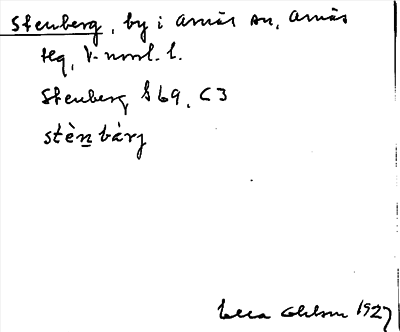 Stenberg, by i Arnäs sn, Arnäs
tlg, V-norrl. l.
Stenberg G 69, C3
stènbàrj
Ella Ohlson 1927